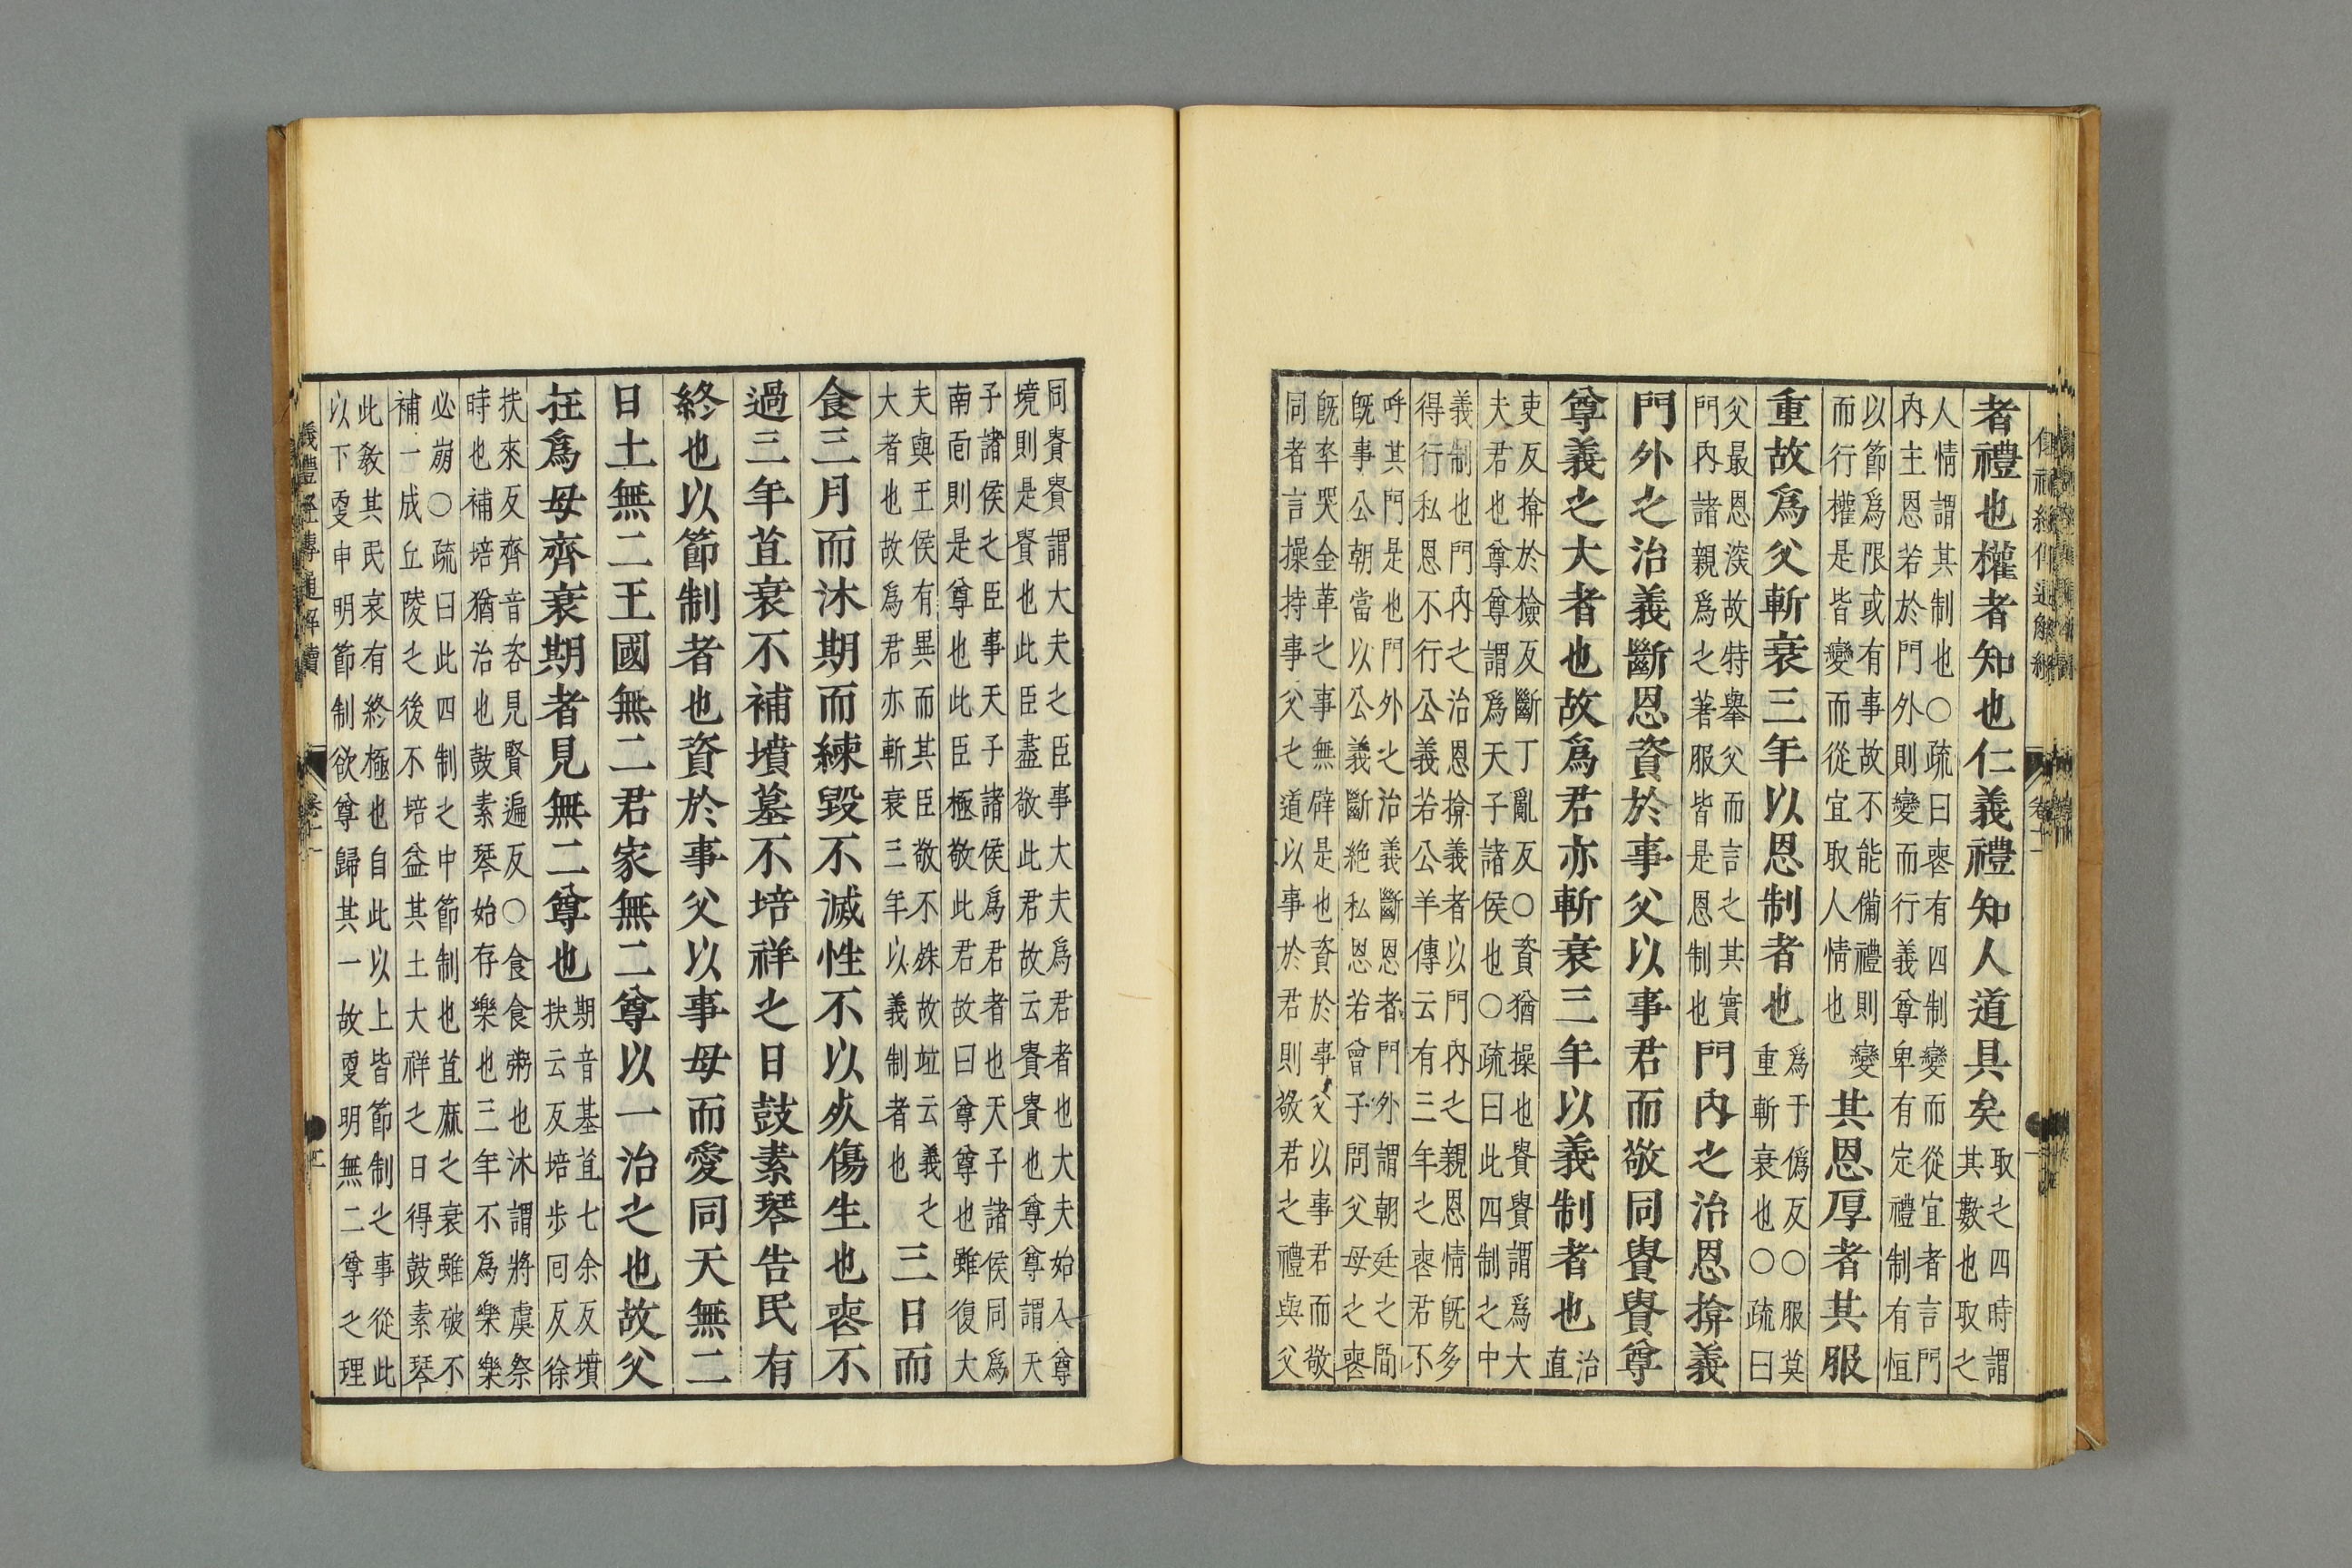 者禮也權者知也仁義禮知人道具矣取之四時謂
其數也取之
人情謂其制也○疏曰喪有四制變而從宜者言門
內主恩若於門外則變而行義尊卑有定禮制有恒
以節爲限或有事故不能備禮則變
而行權是皆變而從宜取人情也其恩厚者其服
重故爲父斬衰三年以恩制者也爲于僞反○服莫
重斬衰也○疏曰
父最恩深故特舉父而言之其實
門內諸親爲之著服皆是恩制也門內之治恩揜義
門外之治義斷恩資於事父以事君而敬同貴貴尊
尊義之大者也故爲君亦斬衰三年以義制者也治
直
吏反揜於檢反斷丁亂反○資猶操也貴貴謂爲大
夫君也尊尊謂爲天子諸侯也○疏曰此四制之中
義制也門內之治恩揜義者以門內之親恩情既多
得行私恩不行公義若公羊傳云有三年之喪君不
呼其門是也門外之治義斷恩者門外謂朝廷之間
既事公朝當以公義斷絶私恩若曾子問父母之喪
既卒哭金革之事無辟是也資於事父以事君而敬
同者言操持事父之道以事於君則敬君之禮與父
同貴貴謂大夫之臣事大夫爲君者也大夫始入尊
境則是貴也此臣盡敬此君故云貴貴也尊尊謂天
子諸侯之臣事天子諸侯爲君者也天子諸侯同爲
南面則是尊也此臣極敬此君故曰尊尊也雖復大
夫與王侯有異而其臣敬不殊故竝云義之
大者也故爲君亦斬衰三年以義制者也三日而
食三月而沐期而練毀不滅性不以死傷生也喪不
過三年苴衰不補墳墓不培祥之日鼓素琴告民有
終也以節制者也資於事父以事母而愛同天無二
日土無二王國無二君家無二尊以一治之也故父
在爲母齊衰期者見無二尊也期音基苴七余反墳
扶云反培步回反徐
扶來反齊音咨見賢遍反○食食粥也沐謂將虞祭
時也補培猶治也鼓素琴始存樂也三年不爲樂樂
必崩○疏曰此四制之中節制也苴麻之衰雖破不
補一成丘陵之後不培益其土大祥之日得鼓素琴
此敎其民哀有終極也自此以上皆節制之事從此
以下更申明節制欲尊歸其一故更明無二尊之理
儀禮經傳通解續 卷十一